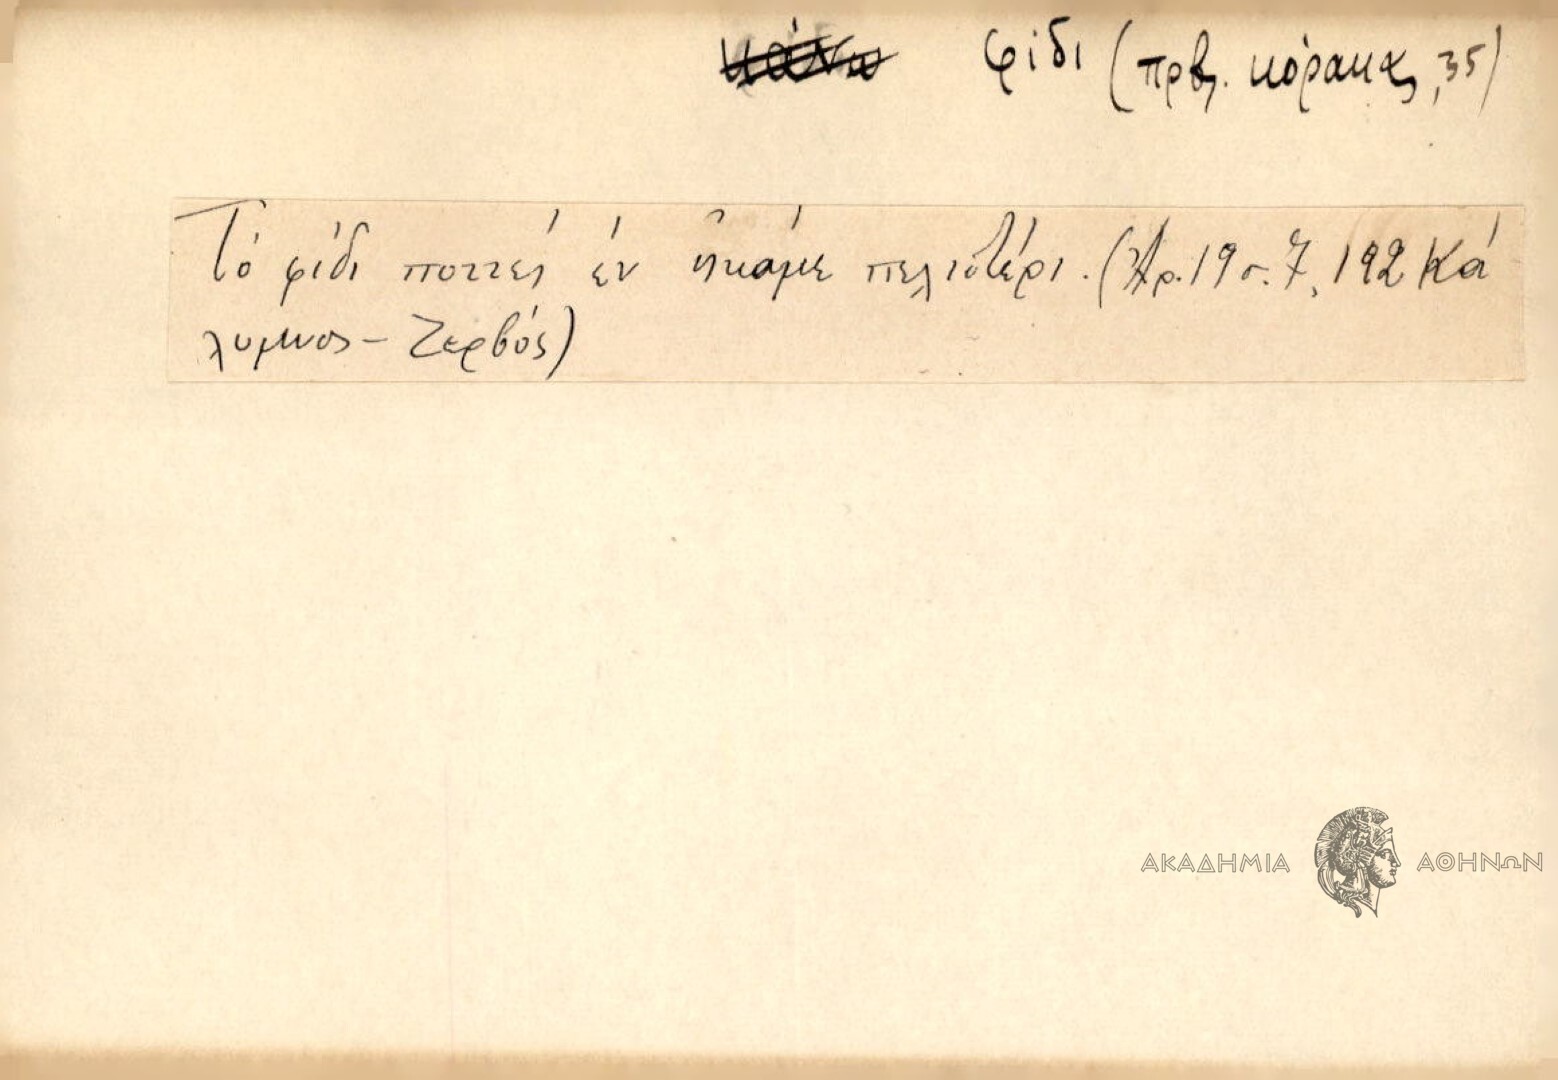 φίδι (πρβ. κόρακας, 35)
Τὸ φίδι ποττέ ἐν ἤκαμε πελιστέρι. (Ἀρ. 19 σ. 7, 192 Κά
λυμνος – Ζερβός)
ΑΚΑΔΗΜΙΑ ΑΘΗΝΩΝ